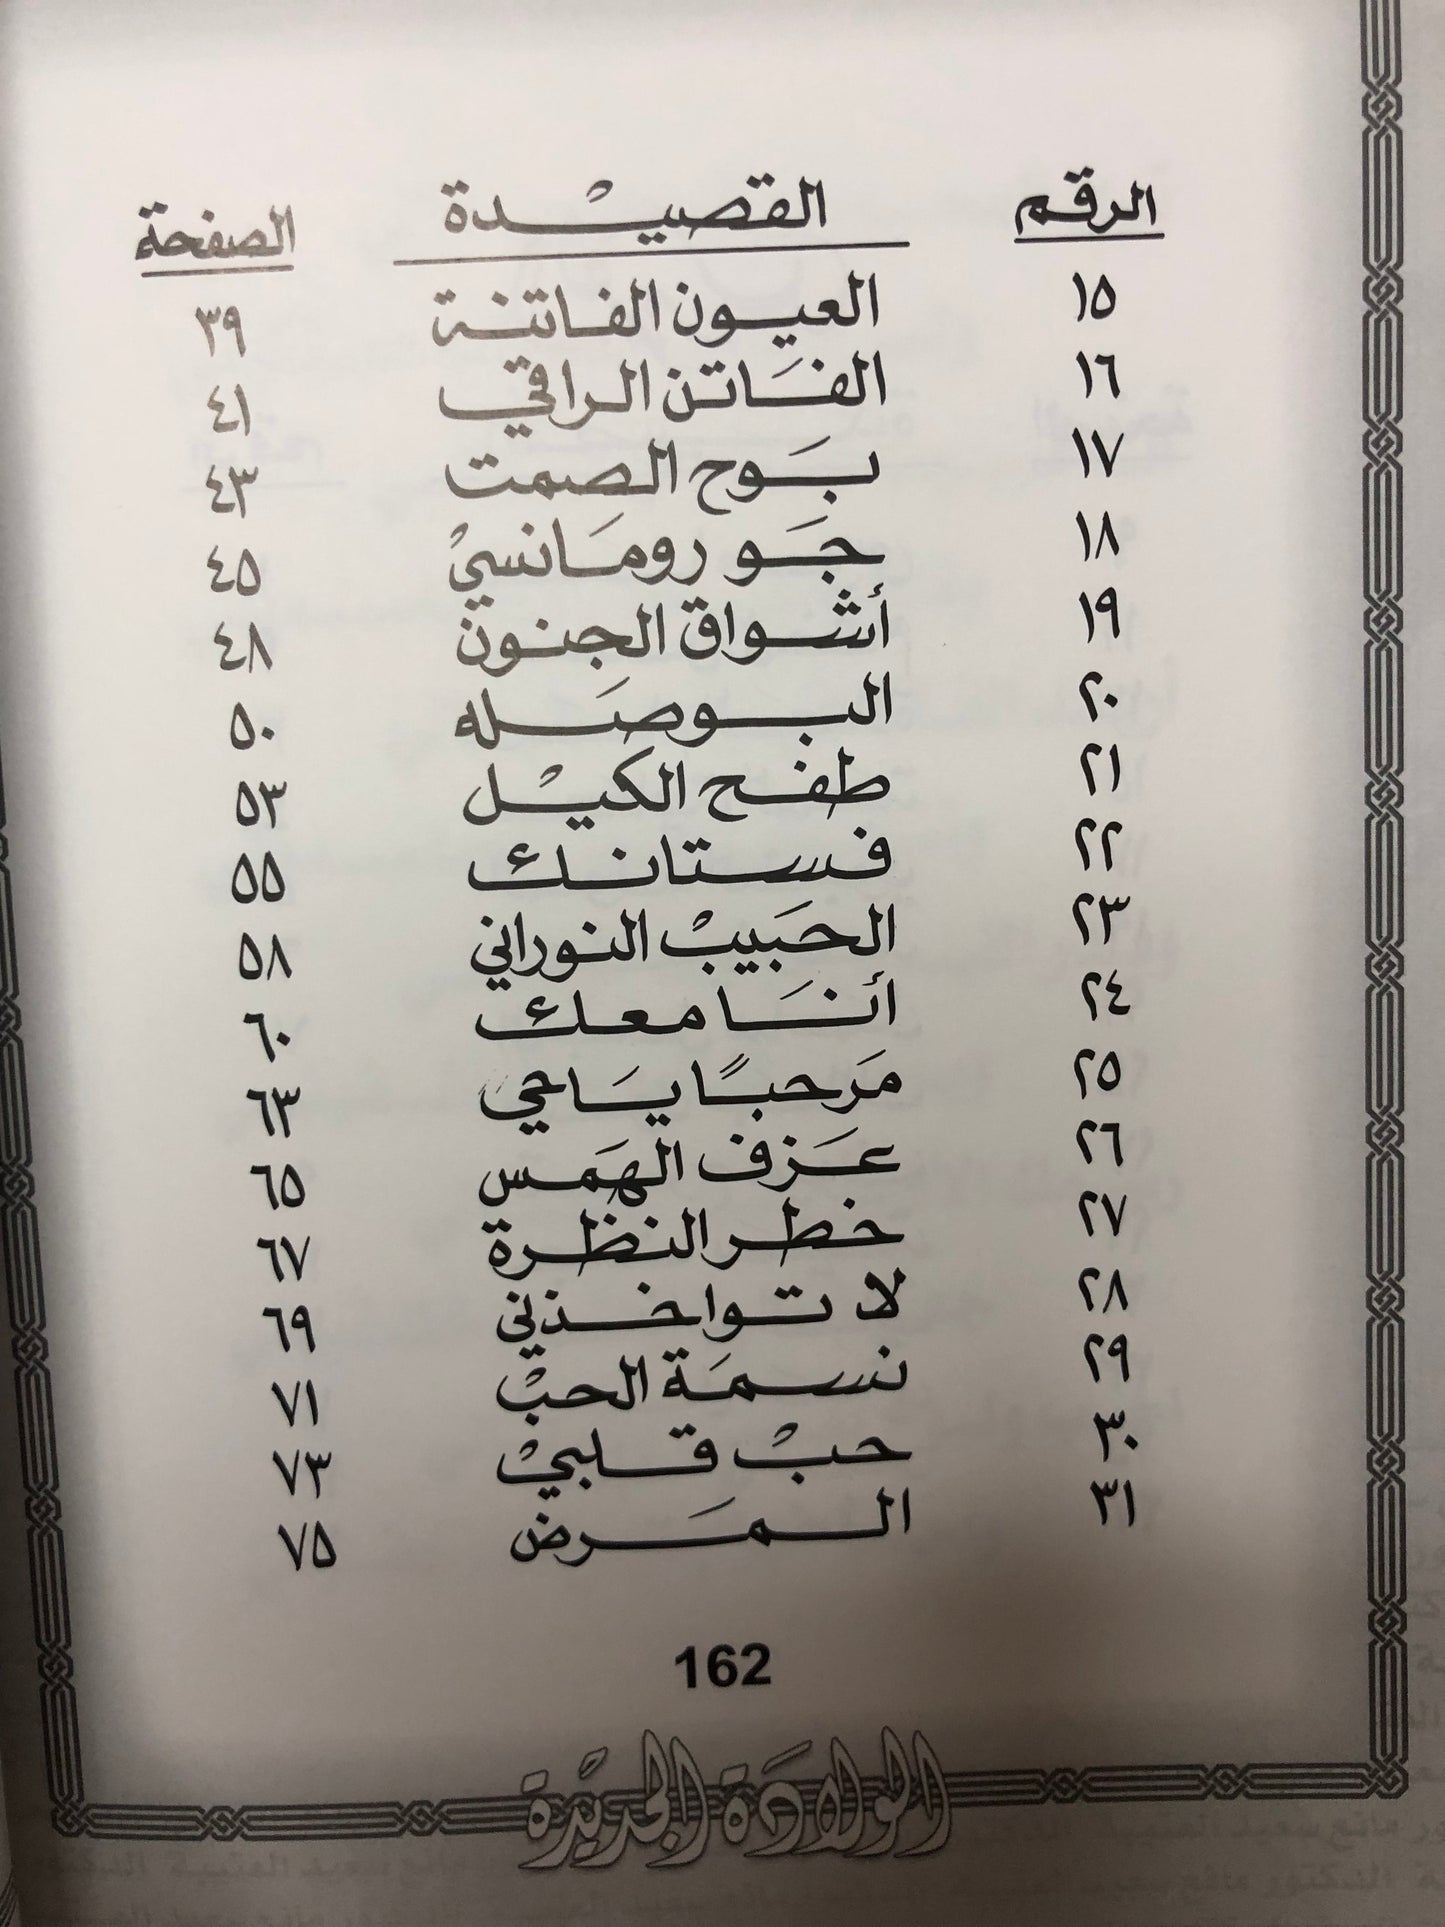 الرقم القصيدة الصفحة
١٥ العيون الفاتنة ٣٩
١٦ الفَاتن الراقي ٤١
١٧ بَوح الصمت ٤٣
١٨ جَو رومَانسيْ ٤٥
١٩ أشواق الجنون ٤٨
٢٠ البوصَله ٥٠
٢١ طفح الكيْل ٥٣
٢٢ فستانك ٥٥
٢٣ الحَبيبْ النوراني ٥٨
٢٤ أنَا معك ٦٠
٢٥ مَرحبًا يَاحي ٦٣
٢٦ عَزف الهَمس ٦٥
٢٧ خطر النظرة ٦٧
٢٨ لا تواخذني ٦٩
٢٩ نسمَة الحبْ ٧١
٣٠ حبْ قلبيْ ٧٣
٣١ المَرض ٧٥
162
الولادَة الجديْدة